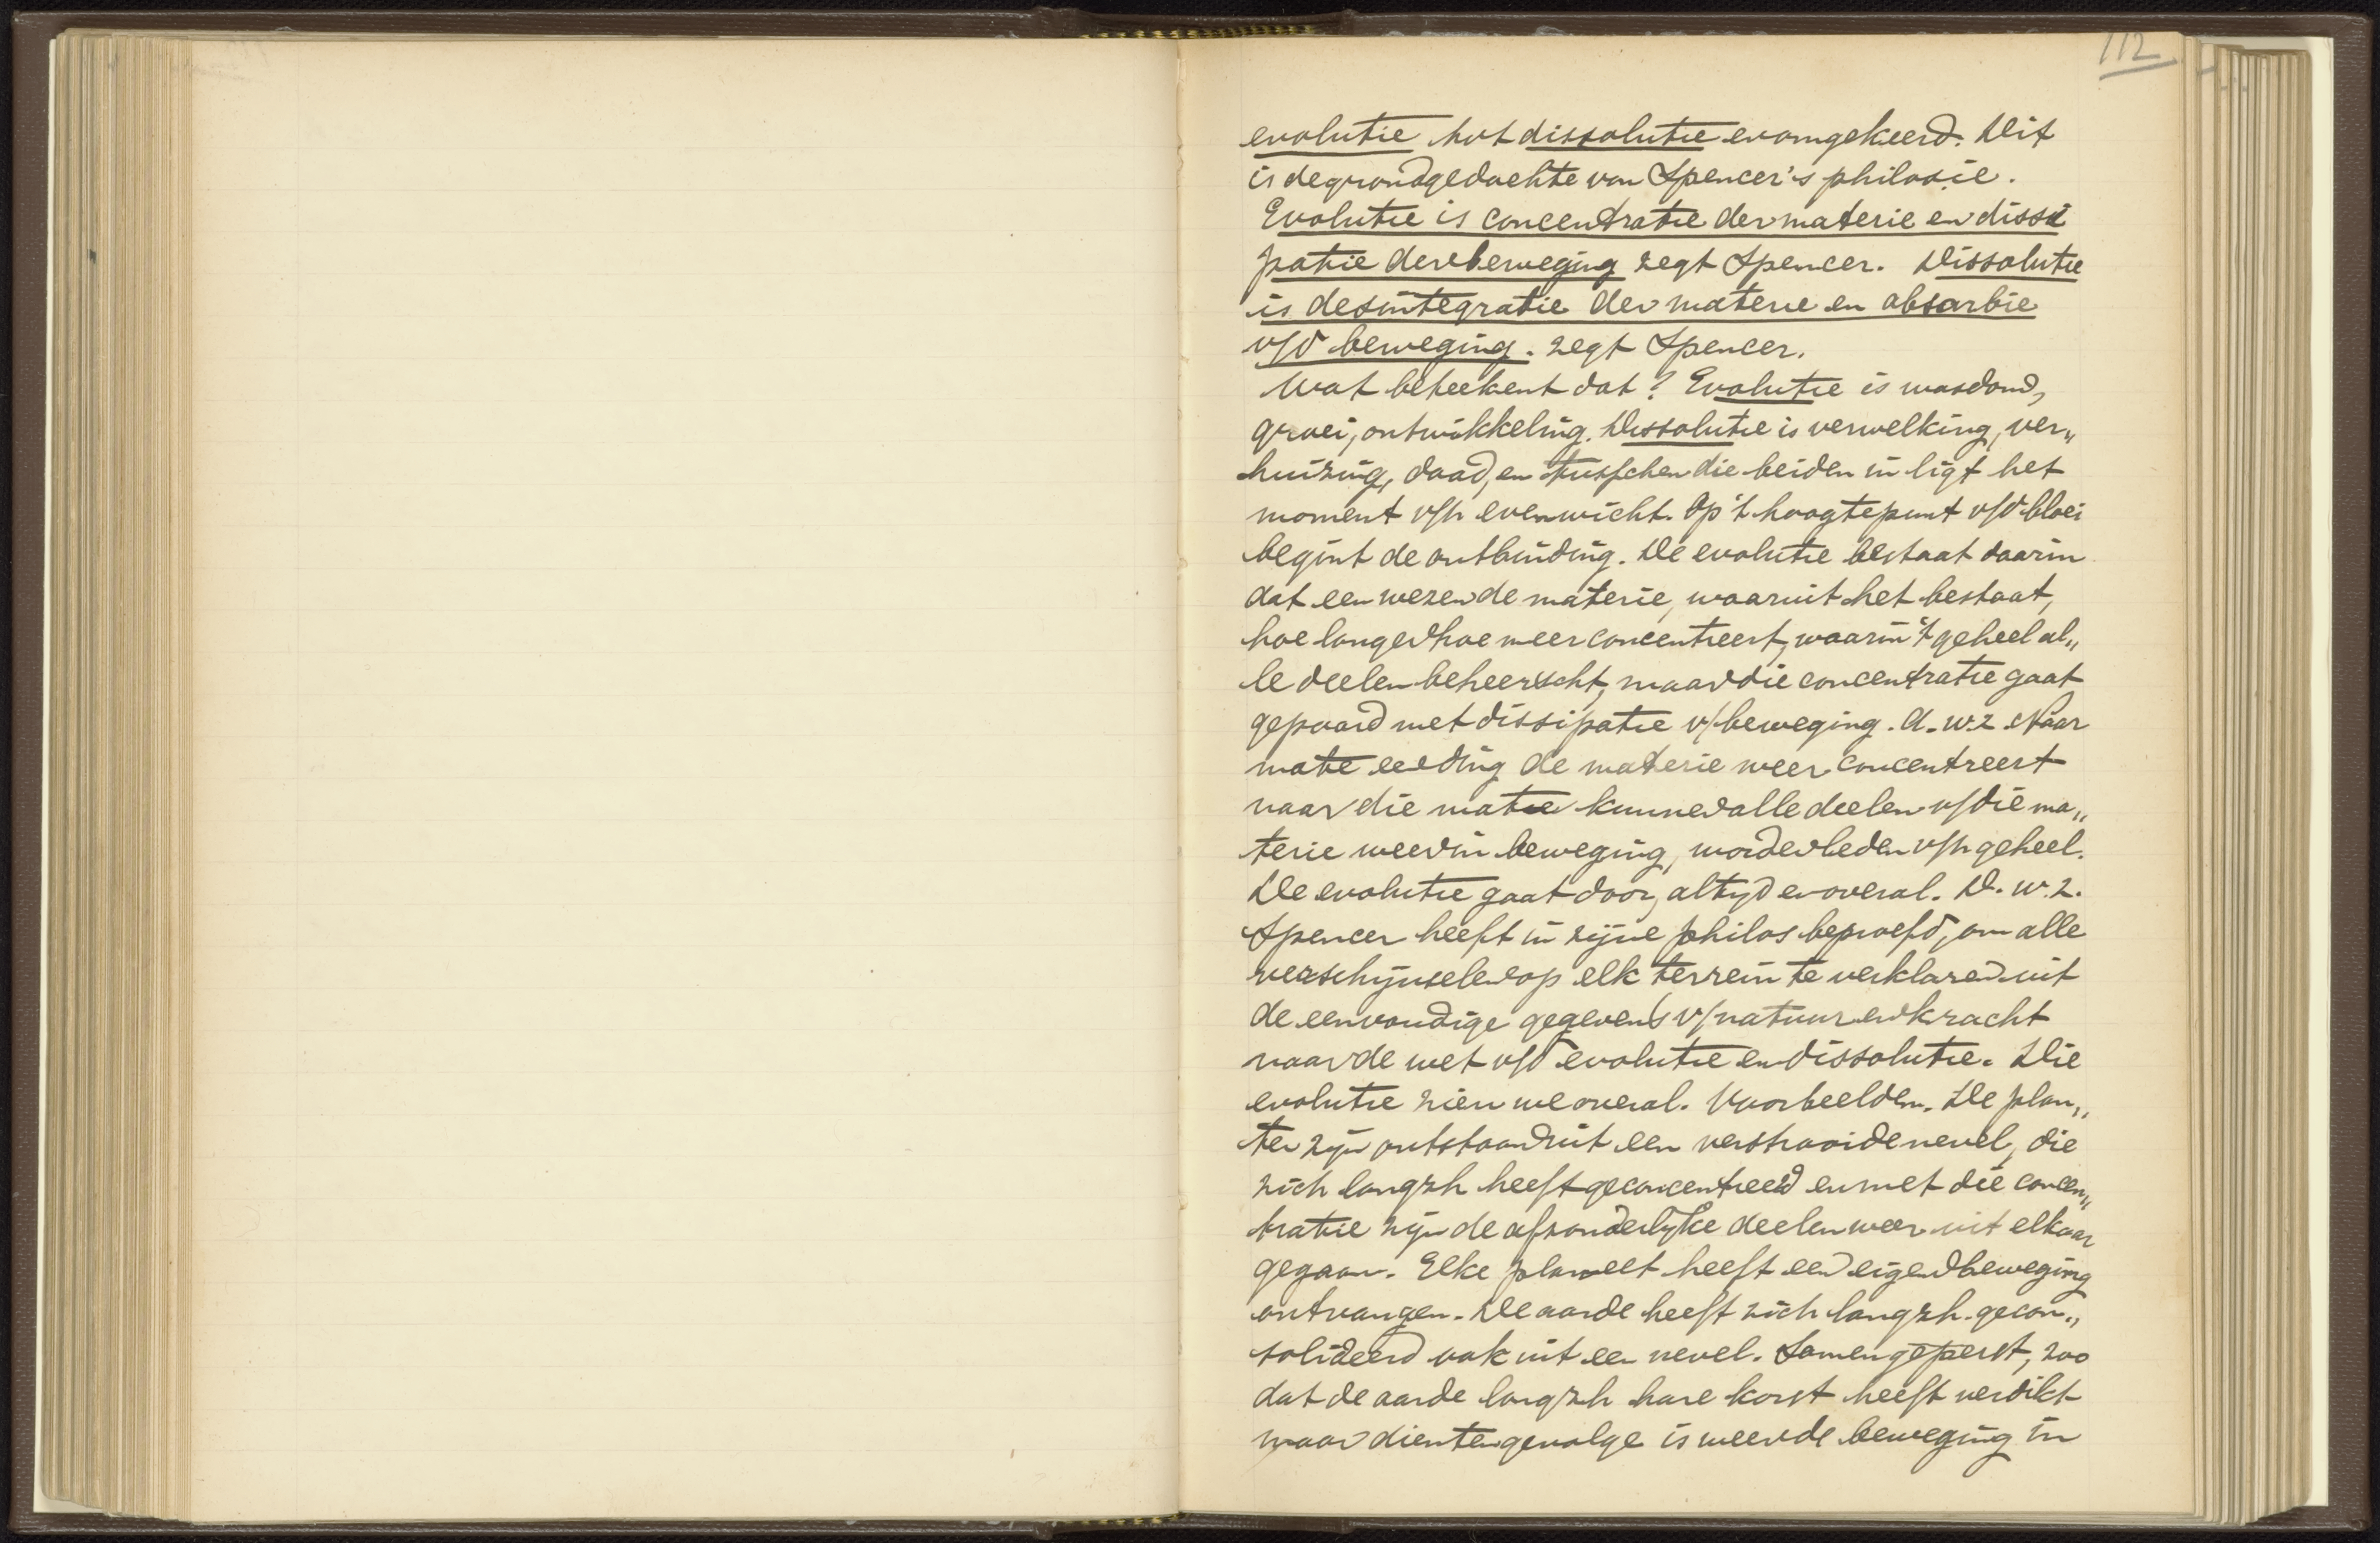 112
evolutie tot dissolutie en omgekeerd. Dit
is de grondgedachte van Spencer's philosie.
Evolutie is concentratie der materie en dissi
patie der beweging zegt Spencer. Dissolutie
is desintegratie der materie en absorbie
v/d beweging. zegt Spencer.
Wat beteekent dat? Evolutie is wasdom,
groei, ontwikkeling. Dissolutie is verwelking, ver„
huizing, dood, en tusschen die beiden in ligt het
moment v/h evenwicht. Op 't hoogtepunt v/d bloei
begint de ontbinding. De evolutie bestaat daarin
dat een wezen de materie, waaruit het bestaat,
hoe langer hoe meer concentreert, waarin 't geheel al„
le deelen beheerscht, maar die concentratie gaat
gepaard met dissipatie v/beweging. d.w.z. Naar
mate een ding de materie meer concentreert
naar die mate kunnen alle deelen v/die ma„
terie weer in beweging, worden leden v/h geheel.
De evolutie gaat door, altyd en overal. D.w.z.
Spencer heeft in zijne philos beproefd, om alle
verschijnselen op elk terrein te verklaren uit
de eenvoudige gegevens v/natuur en kracht
naar de wet v/d evolutie en dissolutie. Die
evolutie zien we overal. Voorbeelden. De plan„
ten zijn ontstaan uit een verstrooide nevel, die
zich langzh heeft geconcentreerd en met die concen„
tratie zijn de afzonderlyke deelen weer uit elkaar
gegaan. Elke planeet heeft een eigen beweging
ontvangen. De aarde heeft zich langzh. gecon„
solideerd ook uit een nevel. Samengeperst, zoo
dat de aarde langzh hare korst heeft verdikt
maar dientengevolge is weer de beweging in